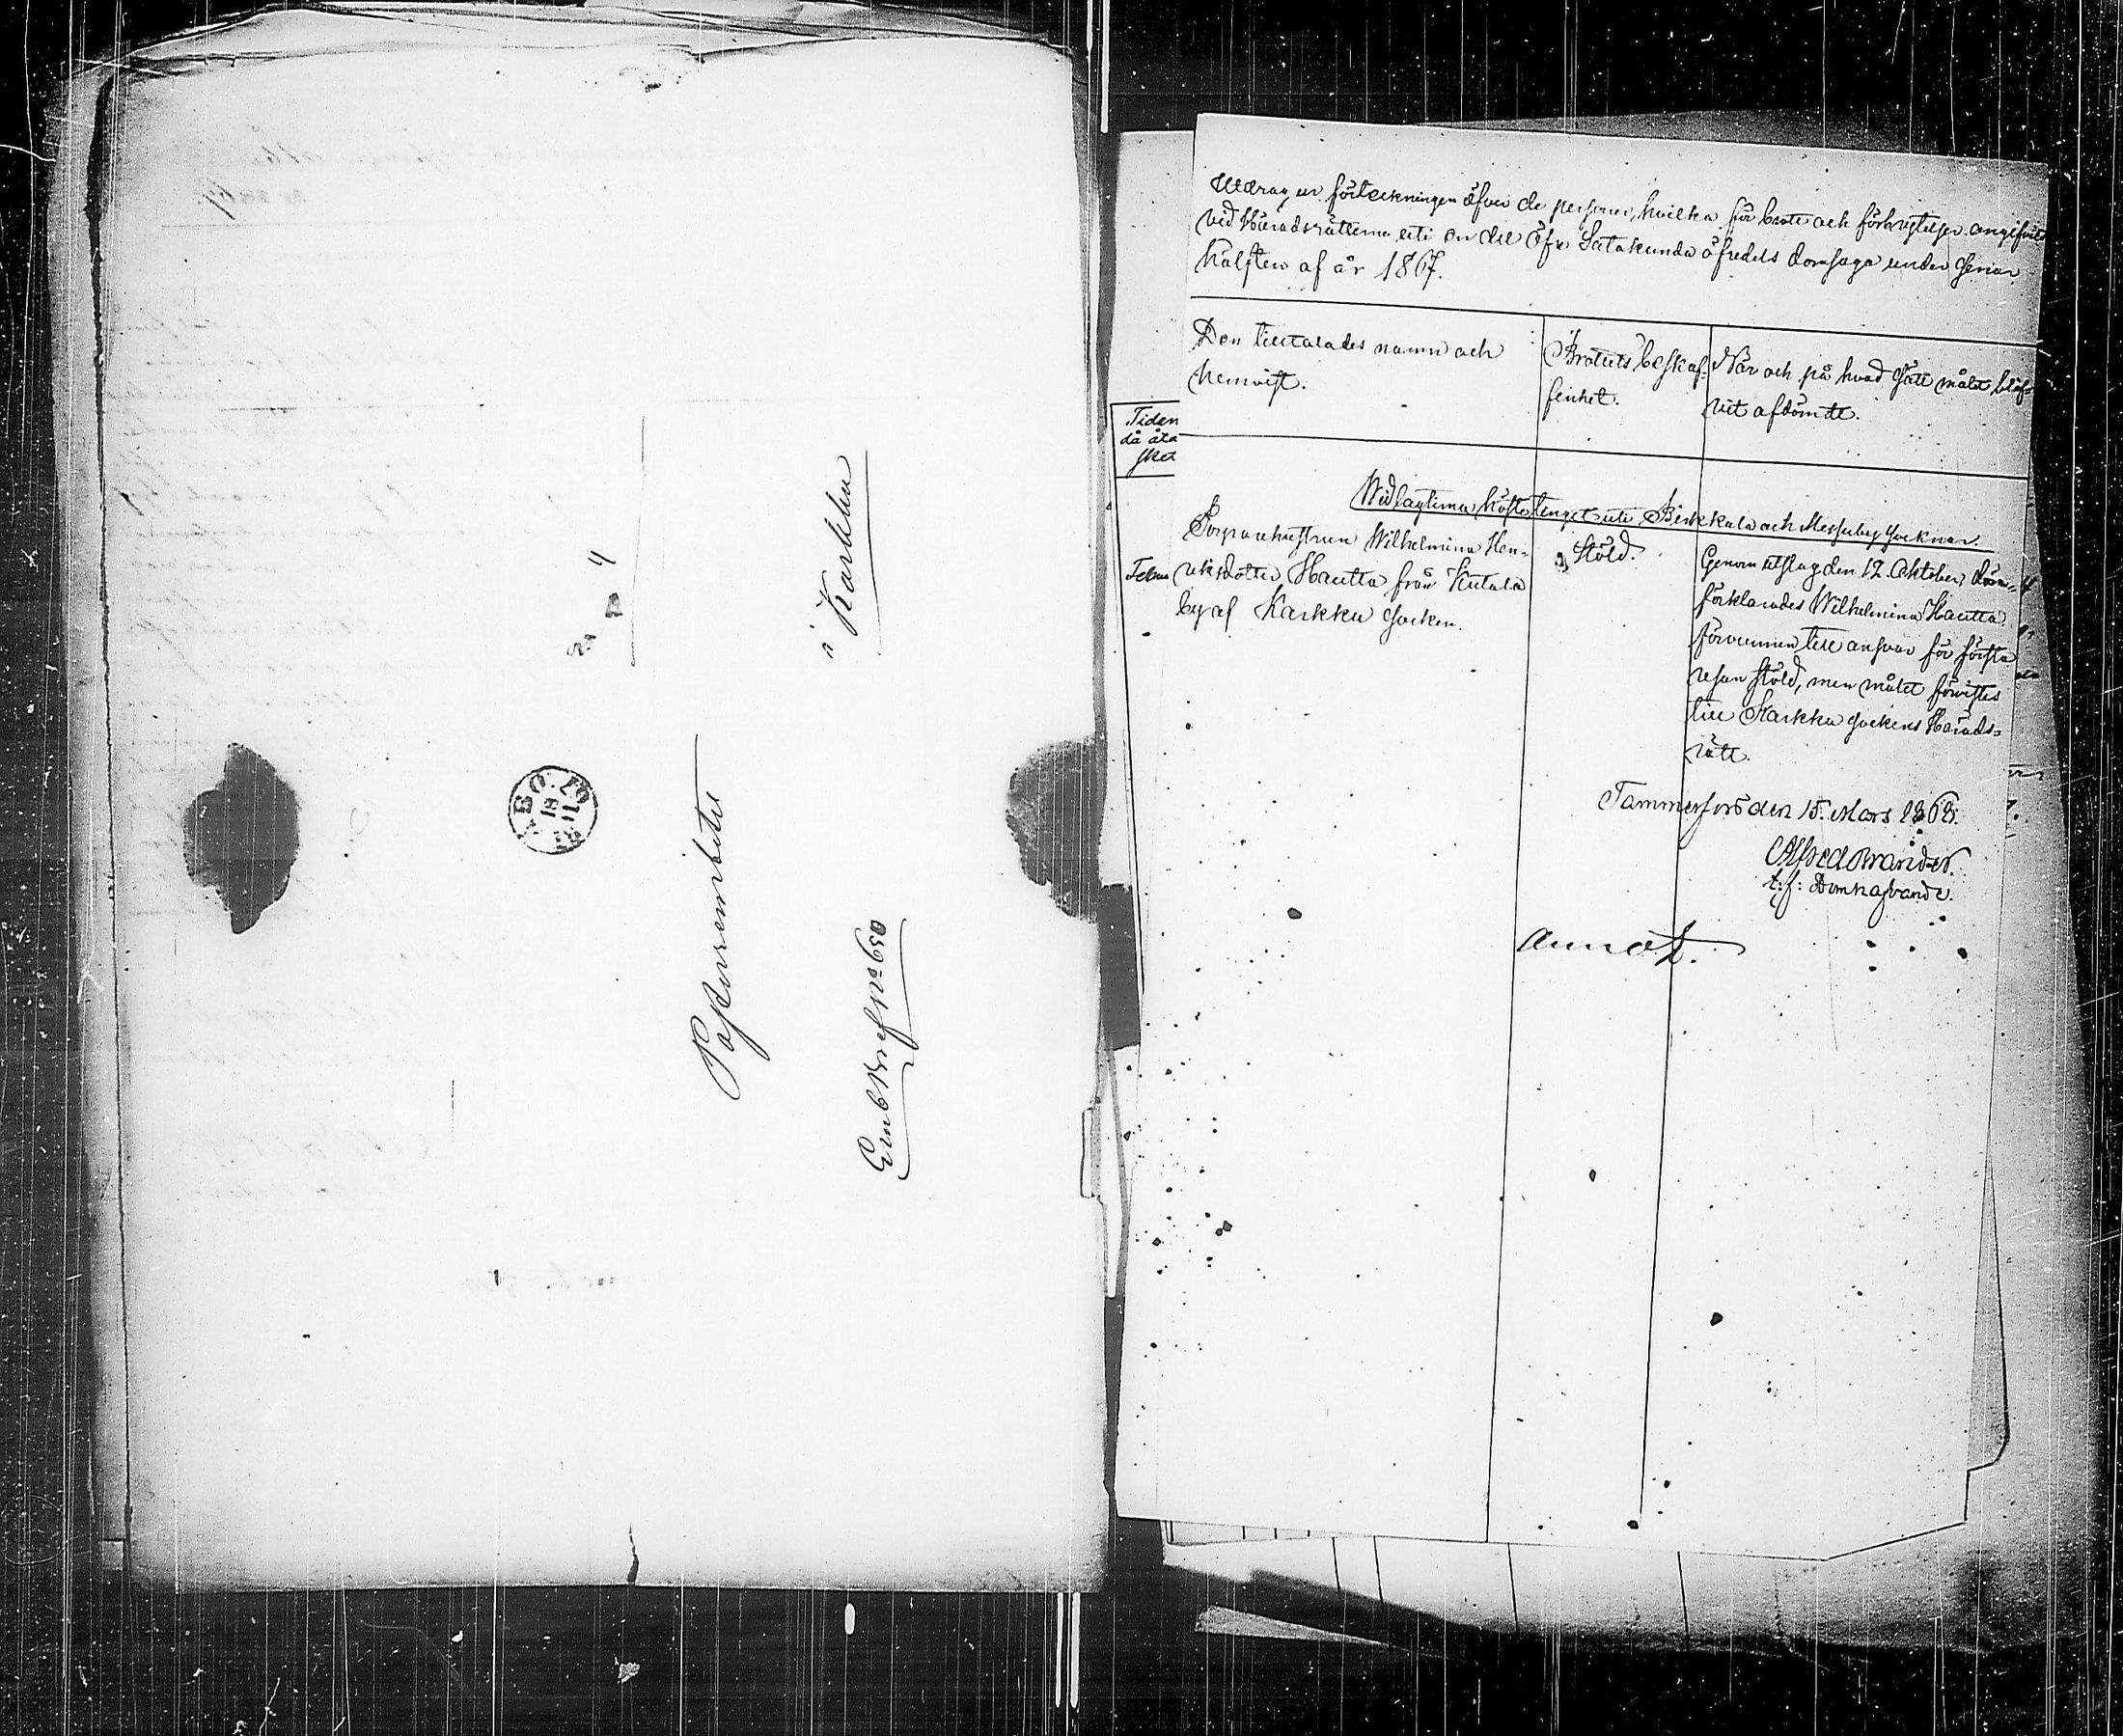 Pastorembetet
i Karkku
EmbBref No 650
ÅBO
Utdrag ur förteckningen öfver de personer, hvilka för brott och förbrytelser angifvits
vid Häradsrätterna uti en del Öfre Satakunda öfredels domsaga under senare
hälften af år 1867.
Den tilltalades namn och
hemvist.
Brottets beskaf-
fenhet.
När och på hvad sätt målet blif-
vit afdömdt.
Tiden
då åta
sket
Vid lagtima hösttinget uti Birkkala och Messuby socknar.
Torparehustrun Wilhelmina Hen-
riksdotter Hautta från Kutala
by af Karkku socken.
Stöld.
Genom utslag den 12. Oktober
förklarades Wilhelmina Hautta
förvunnen till ansvar för första
resan stöld, men målet förvistes
till Karkku sockens Härads-
rätt.
Tammerfors den 15. Mars 1868.
Alfred Brander.
t:f: Domhafvande.
annot.